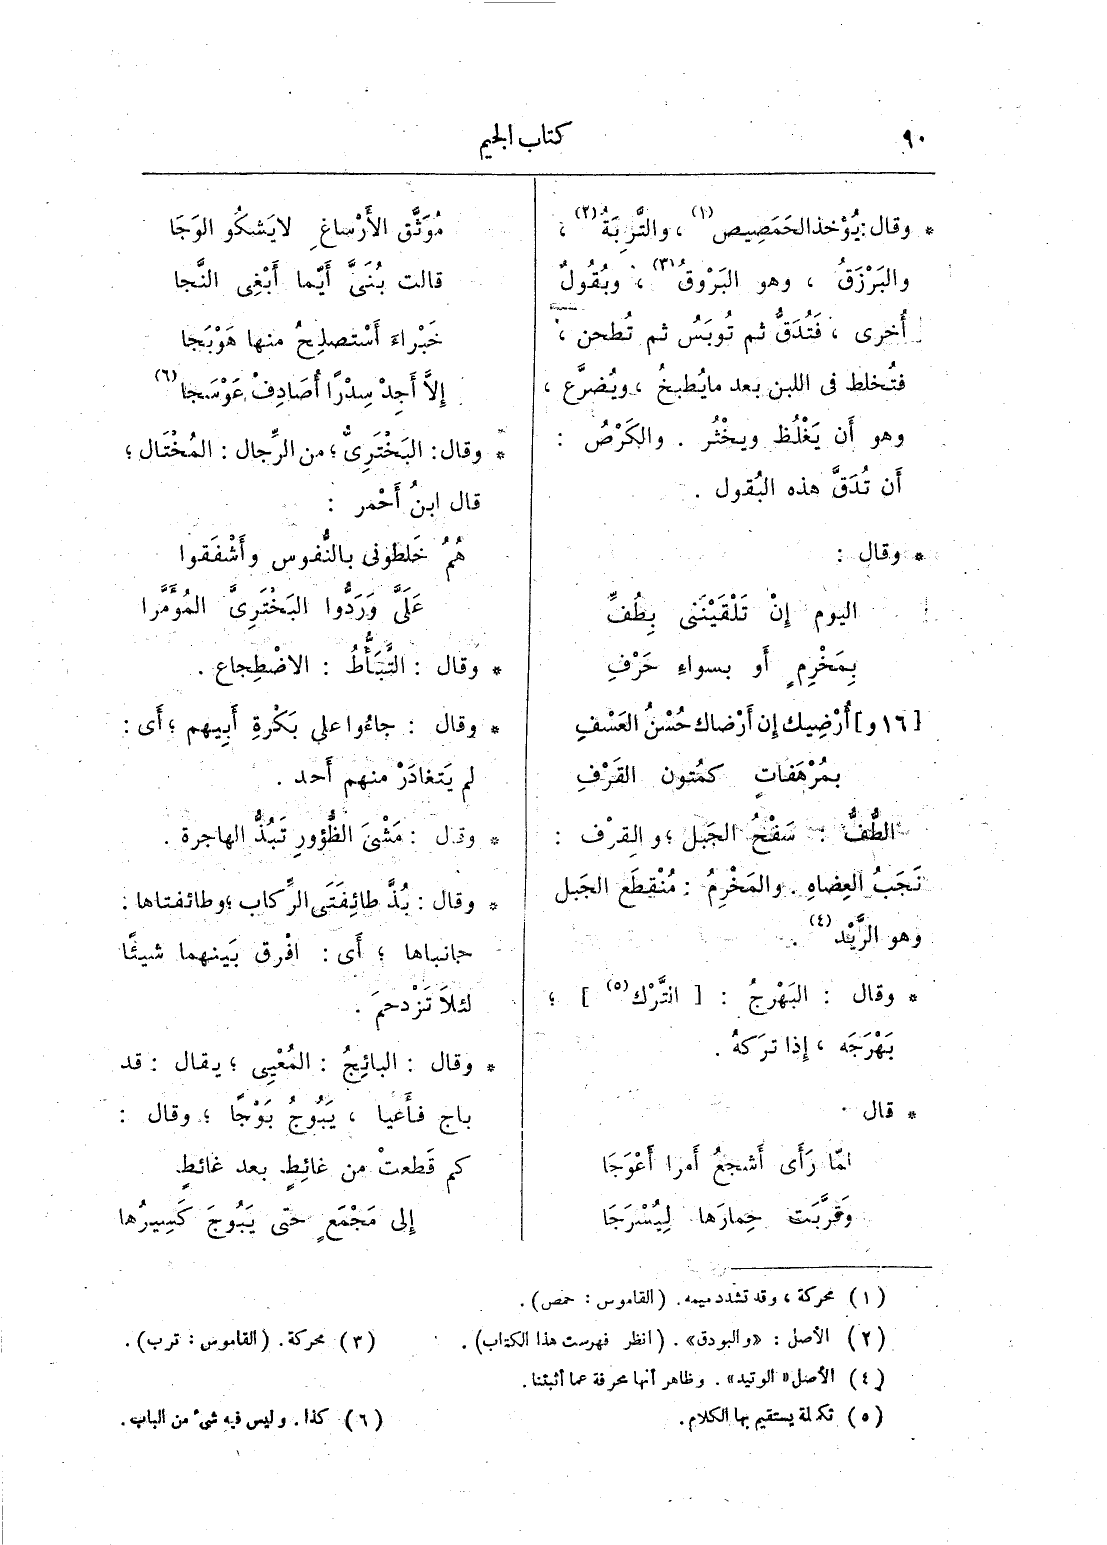 ٩٠
كتاب الجيم
* وقال: يُؤخذ الحَمَصِيص (١) ، والتَّرِبَةُ (٢) ،
والبَرْزَقُ ، وهو البَرْوَقُ (٣) ؛ وبُقُولٌ
أُخرى ، فَتُدَقُّ ثم تُوبَسُ ثم تُطحن ،
فتُخلط فى اللبن بعد مايُطبخُ ، ويُضرَّع ،
وهو أن يَغْلُظ ويخْثُر . والكَرْصُ :
أن تُدَقَّ هذه البُقول .
* وقال :
اليوم إنْ تَلْقَيْنَنى بِطُفِّ
بِمَخْرِمٍ أو بسواءِ حَرْفِ
[١٦ و] أُرْضِيك إن أرْضاك حُسْنُ العَسْفِ
بمُرْهَفاتٍ كمُتون القَرْفِ
الطُّفُّ : سَفْحُ الجَبل ؛ و القِرْف :
نَجَبُ العِضاهِ . والمَخْرِمُ : مُنْقِطَع الجَبل
وهو الرَّيْد (٤) .
* وقال : البَهْرجُ : [ التَّرْك (٥) ] ؛
بَهْرَجَه ، إذا ترَكهُ .
* قال
لمّا رَأَى أشجعُ أمرا أعْوَجَا
وَقرَّبَت حِمارَها لِيُسْرَجَا
مُوَثَّق الأَرْساغِ لايَشكُو الوَجَا
قالت بُنَىَّ أيَّما أبْغِى النَّجا
خَبْراءَ أسْتصلِحُ منها هَوْبَجا
إلاَّ أجِدْ سِدْرًا أُصَادِفْ عَوْسَجا (٦)
* وقال: البَخْتَرِىُّ ؛ من الرِّجال : المُخْتَال ؛
قال ابنُ أَحْمر :
هُمُ خَلطونى بالنُّفوس وأشْفَقوا
عَلَىَّ وَرَدُّوا البَخْتَرِىَّ المُؤَمَّرا
* وقال : التَّبَأُّطُ : الاضْطِجاع .
* وقال : جاءُوا على بَكْرةِ أبِيهم ؛ أى :
لم يَتغادَرْ منهم أحد .
* وقال : مَشْىَ الظُّؤورِ تَبُذُّ الهاجرة .
* وقال : بُذَّ طائِفَتَى الرِّكاب ؛ وطائفتاها :
جانباها ؛ أى : افْرق بَينهما شيئًا
لئلاَ تَزْدحمَ .
* وقال : البائِجُ : المُعْيِى ؛ يقال : قد
باج فأَعيا ، يَبُوجُ بَوْجًا ؛ وقال :
كم قَطعتْ من غائِطٍ بعد غائطٍ
إلى مَجْمَعٍ حتّى يَبُوجَ كَسِيرُها
(١) محركة ، وقد تشدد ميمه. (القاموس : حمص) .
(٢) الأصل : «والبودق» . (انظر فهرست هذا الكتاب) .
(٣) محركة. (القاموس : ترب) .
(٤) الأصل «الوتيد» . وظاهر أنها محرفة عما أثبتنا .
(٥) تكملة يستقيم بها الكلام.
(٦) كذا. وليس فيه شىء من الباب.